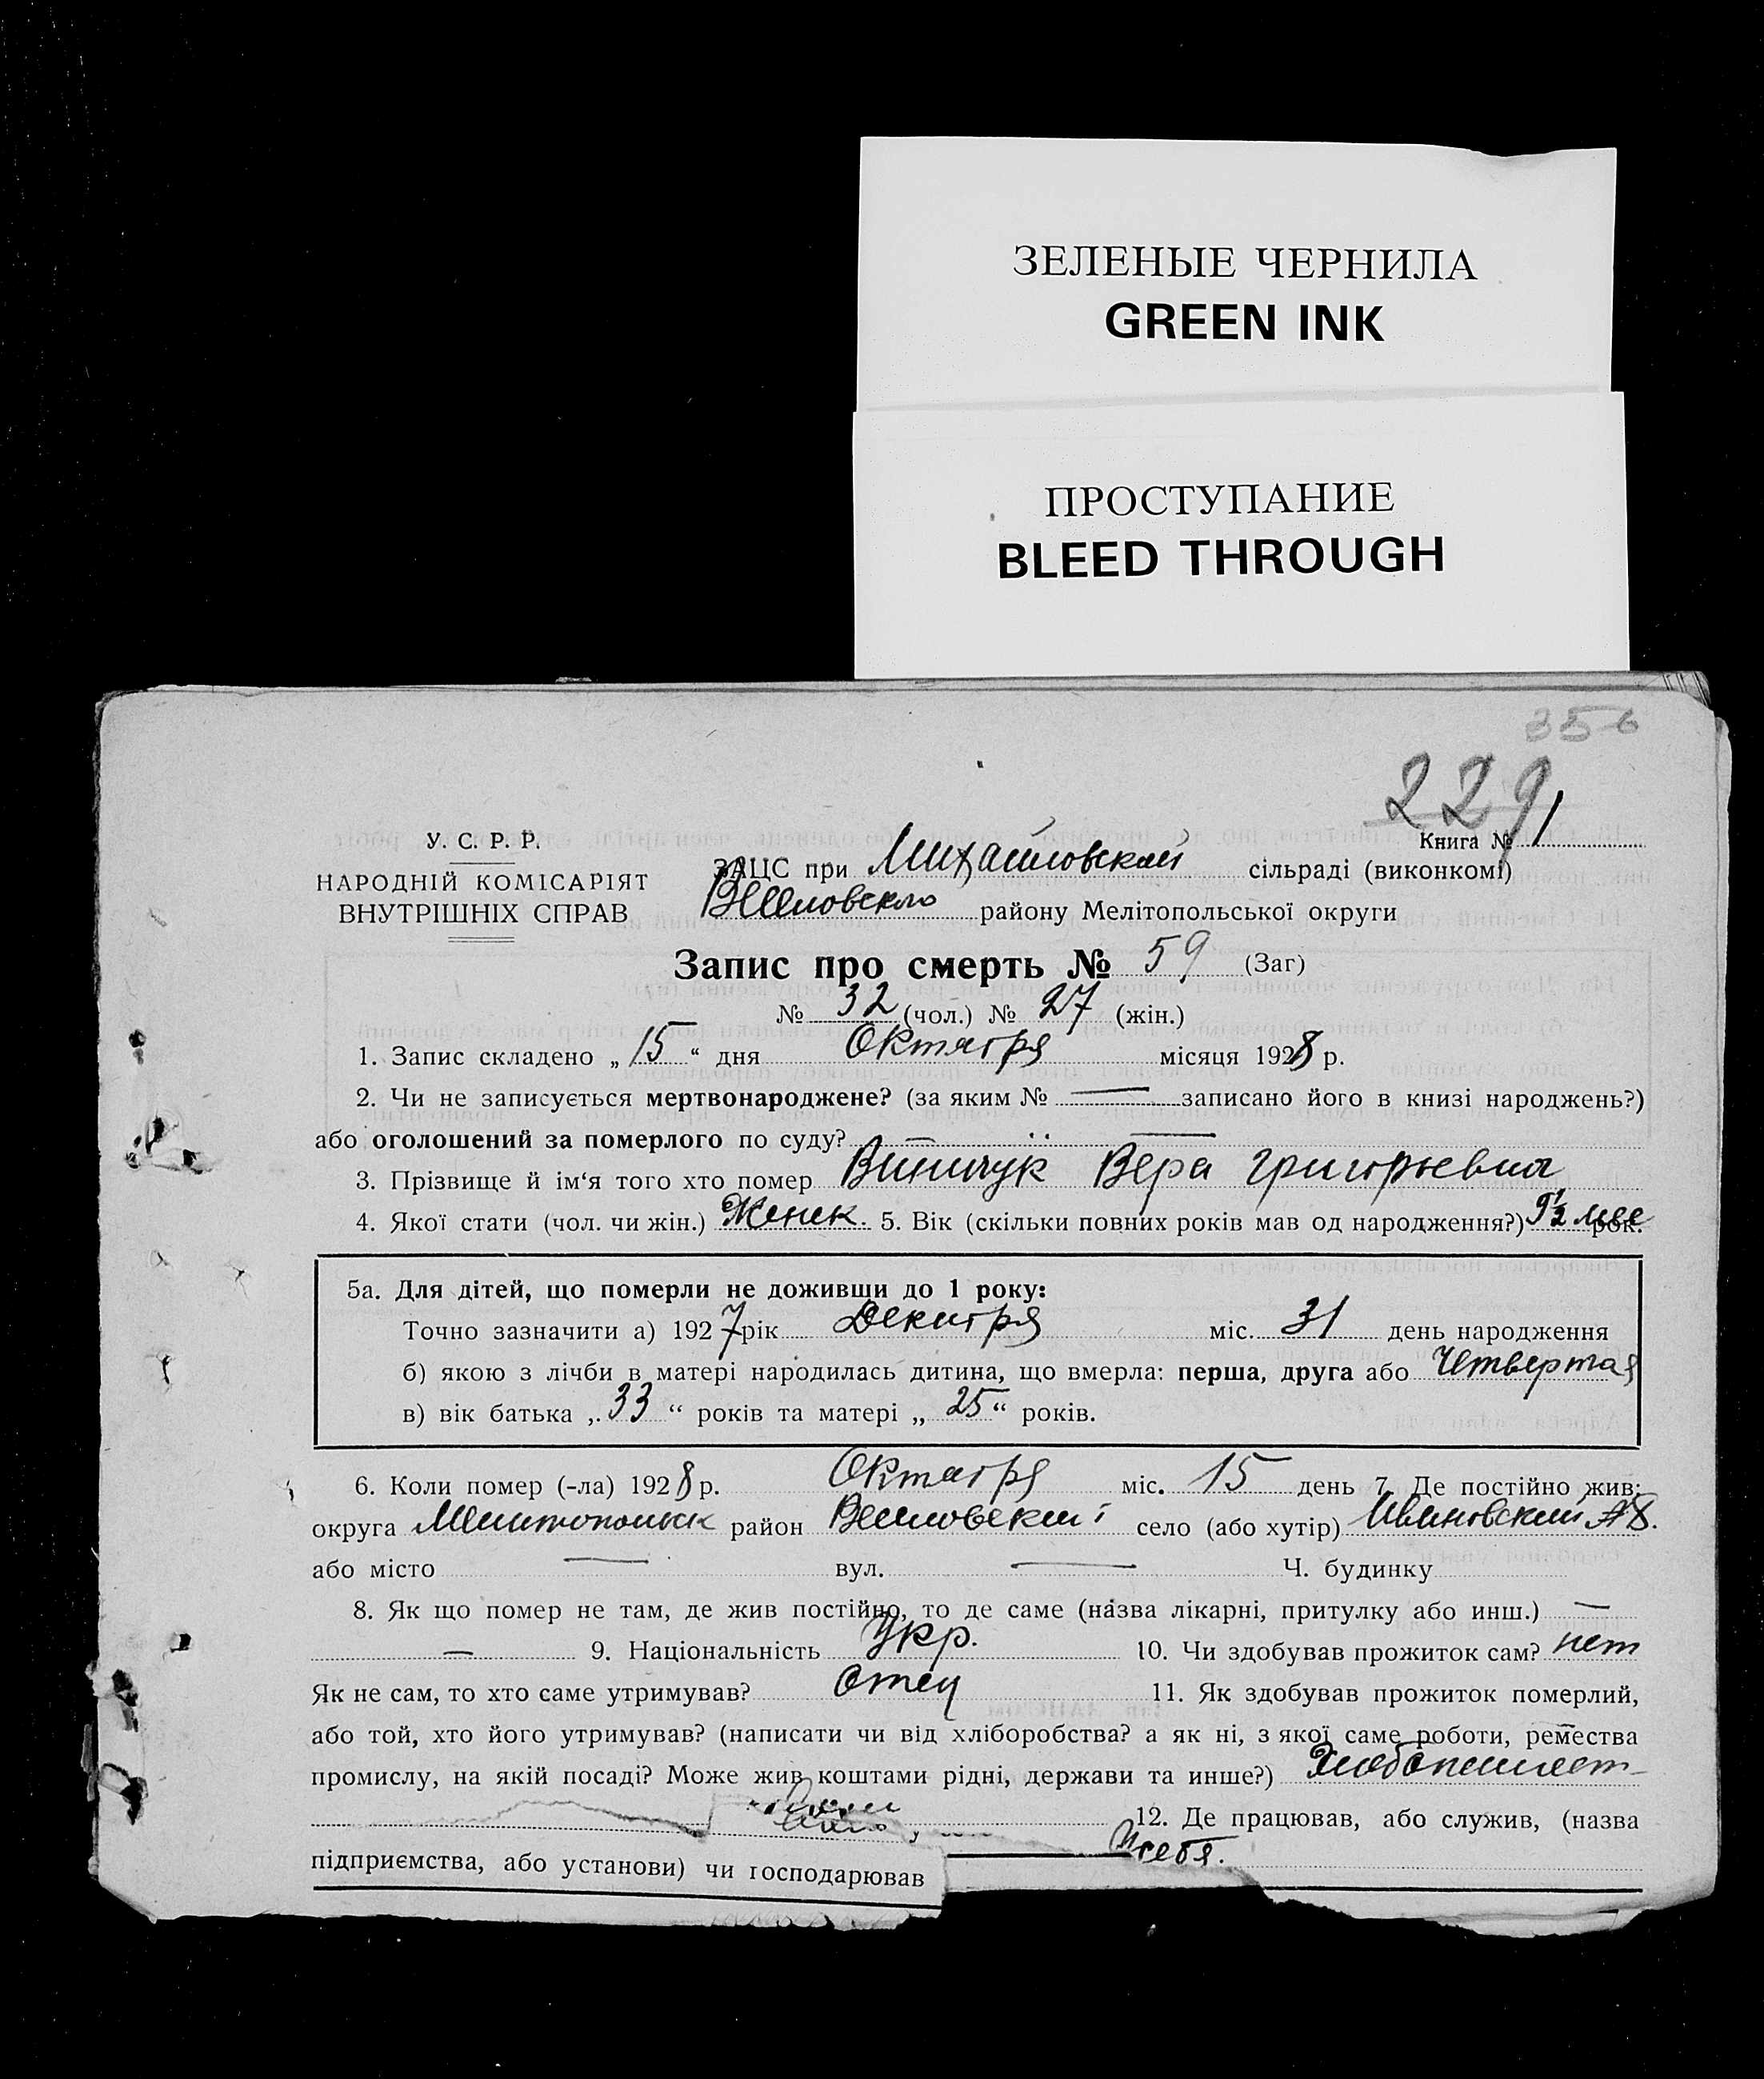 ЗЕЛЕНЫЕ ЧЕРНИЛА
GREEN INK
ПРОСТУПАНИЕ
BLEED THROUGH
356
229
Книга № 1
У. С. Р. Р.
НАРОДНІЙ КОМІСАРІЯТ
ВНУТРІШНІХ СПРАВ
ЗАЦС при Михайловской сільраді (виконкомі)
району Мелітопольської округи
Запис про смерть № 59 (Заг)
№ 32 (чол.) № 27 (жін.)
1. Запис складено „ 15 “ дня Октября місяця 1928 р.
2. Чи не записується мертвонароджене? (за яким № — записано його в книзі народжень?)
або оголошений за померлого по суду? — —
3. Прізвище й ім‘я того хто помер Виничук Вера Григорьевна
4. Якої стати (чол. чи жін.) Женск. 5. Вік (скільки повних років мав од народження?) 9½ мес рок.
5а. Для дітей, що померли не доживши до 1 року:
Точно зазначити а) 1927 рік Декабря міс. 31 день народження
б) якою з лічби в матері народилась дитина, що вмерла: перша, друга або Четвертая
в) вік батька „ 33 “ років та матері „ 25 “ років.
6. Коли помер (-ла) 1928 р. Октября міс. 15 день 7. Де постійно жив:
округа Мелитопольск район Веселовский село (або хутір) Ивановский
або місто — вул. — Ч. будинку
8. Як що помер не там, де жив постійно, то де саме (назва лікарні, притулку або инш.) —
— 9. Національність Укр. 10. Чи здобував прожиток сам? нет
Як не сам, то хто саме утримував? Отец 11. Як здобував прожиток померлий,
або той, хто його утримував? (написати чи від хліборобства? а як ні, з якої саме роботи, ремества
промислу, на якій посаді? Може жив коштами рідні, держави та инше?) Хлебопашест-
12. Де працював, або служив, (назва
підприємства, або установи) чи господарював У себя.